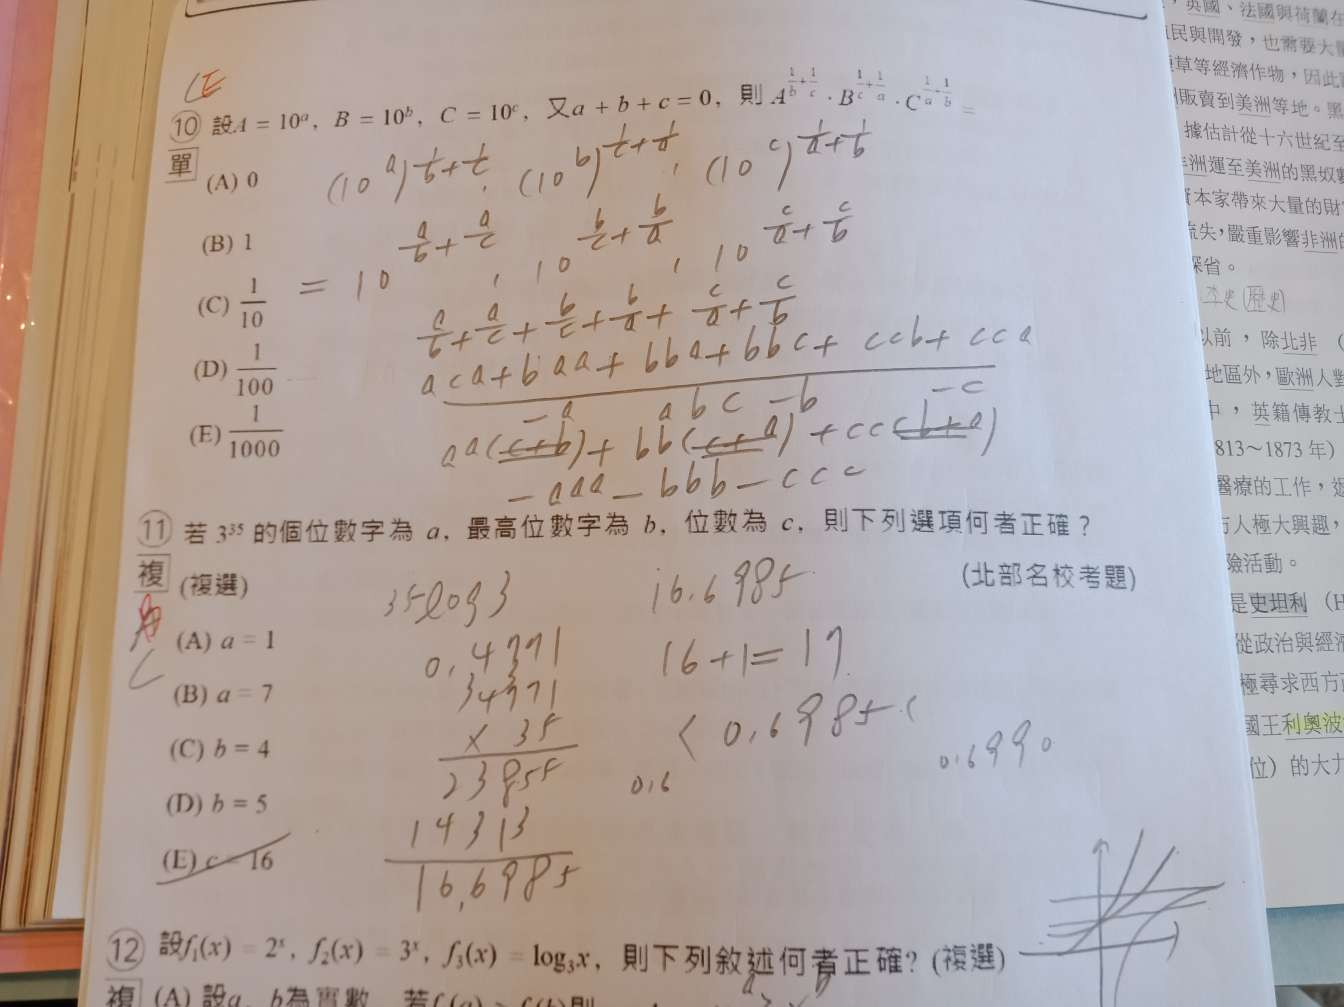 CE
⑩ 設A = 10ᵃ, B = 10ᵇ, C = 10ᶜ, 又a + b + c = 0, 則 A^(1/b + 1/c) · B^(1/c + 1/a) · C^(1/a + 1/b) =
單
(A) 0
(10^a)^(1/b + 1/c) · (10^b)^(1/c + 1/a) · (10^c)^(1/a + 1/b)
(B) 1
= 10^(a/b + a/c) · 10^(b/c + b/a) · 10^(c/a + c/b)
(C) 1/10
a/b + a/c + b/c + b/a + c/a + c/b
(D) 1/100
aca + baa + bba + bbc + ccb + cca
abc
-a -b -c
(E) 1/1000
aa(c+b) + bb(c+a) + cc(b+a)
-aaa - bbb - ccc
⑪ 若 3³⁵ 的個位數字為 a, 最高位數字為 b, 位數為 c, 則下列選項何者正確?
複 (複選)
(北部名校考題)
35log3
16.6985
(A) a = 1
0.4771
16+1=17
C
(B) a = 7
34771
× 35
< 0.6985 <
(C) b = 4
23855
0.6
0.6990
(D) b = 5
14313
(E) c = 16
16.6985
⑫ 設f₁(x) = 2ˣ, f₂(x) = 3ˣ, f₃(x) = log₃x, 則下列敘述何者正確? (複選)
複 (A) 設a, b為實數
,英國、法國與荷蘭在
民與開發,也需要大量
草等經濟作物,因此
販賣到美洲等地。黑
據估計從十六世紀至
非洲運至美洲的黑奴
資本家帶來大量的財
流失,嚴重影響非洲
深省。
(歷史)
以前,除北非(
地區外,歐洲人對
中,英籍傳教士
813~1873 年)
醫療的工作,返
方人極大興趣,
險活動。
是史坦利(H
從政治與經濟
極尋求西方
國王利奧波
位)的大力